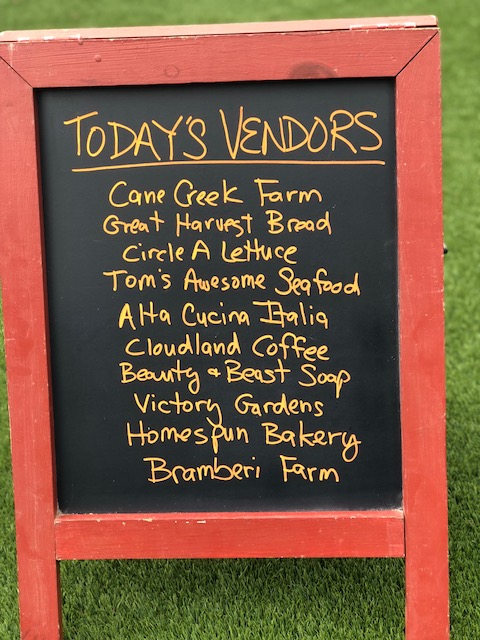 TODAY'S VENDORS
Cane Creek Farm
Great Harvest Bread
Circle A Lettuce
Tom's Awesome Seafood
Alta Cucina Italia
Cloudland Coffee
Beauty & Beast Soap
Victory Gardens
Homespun Bakery
Bramberi Farm